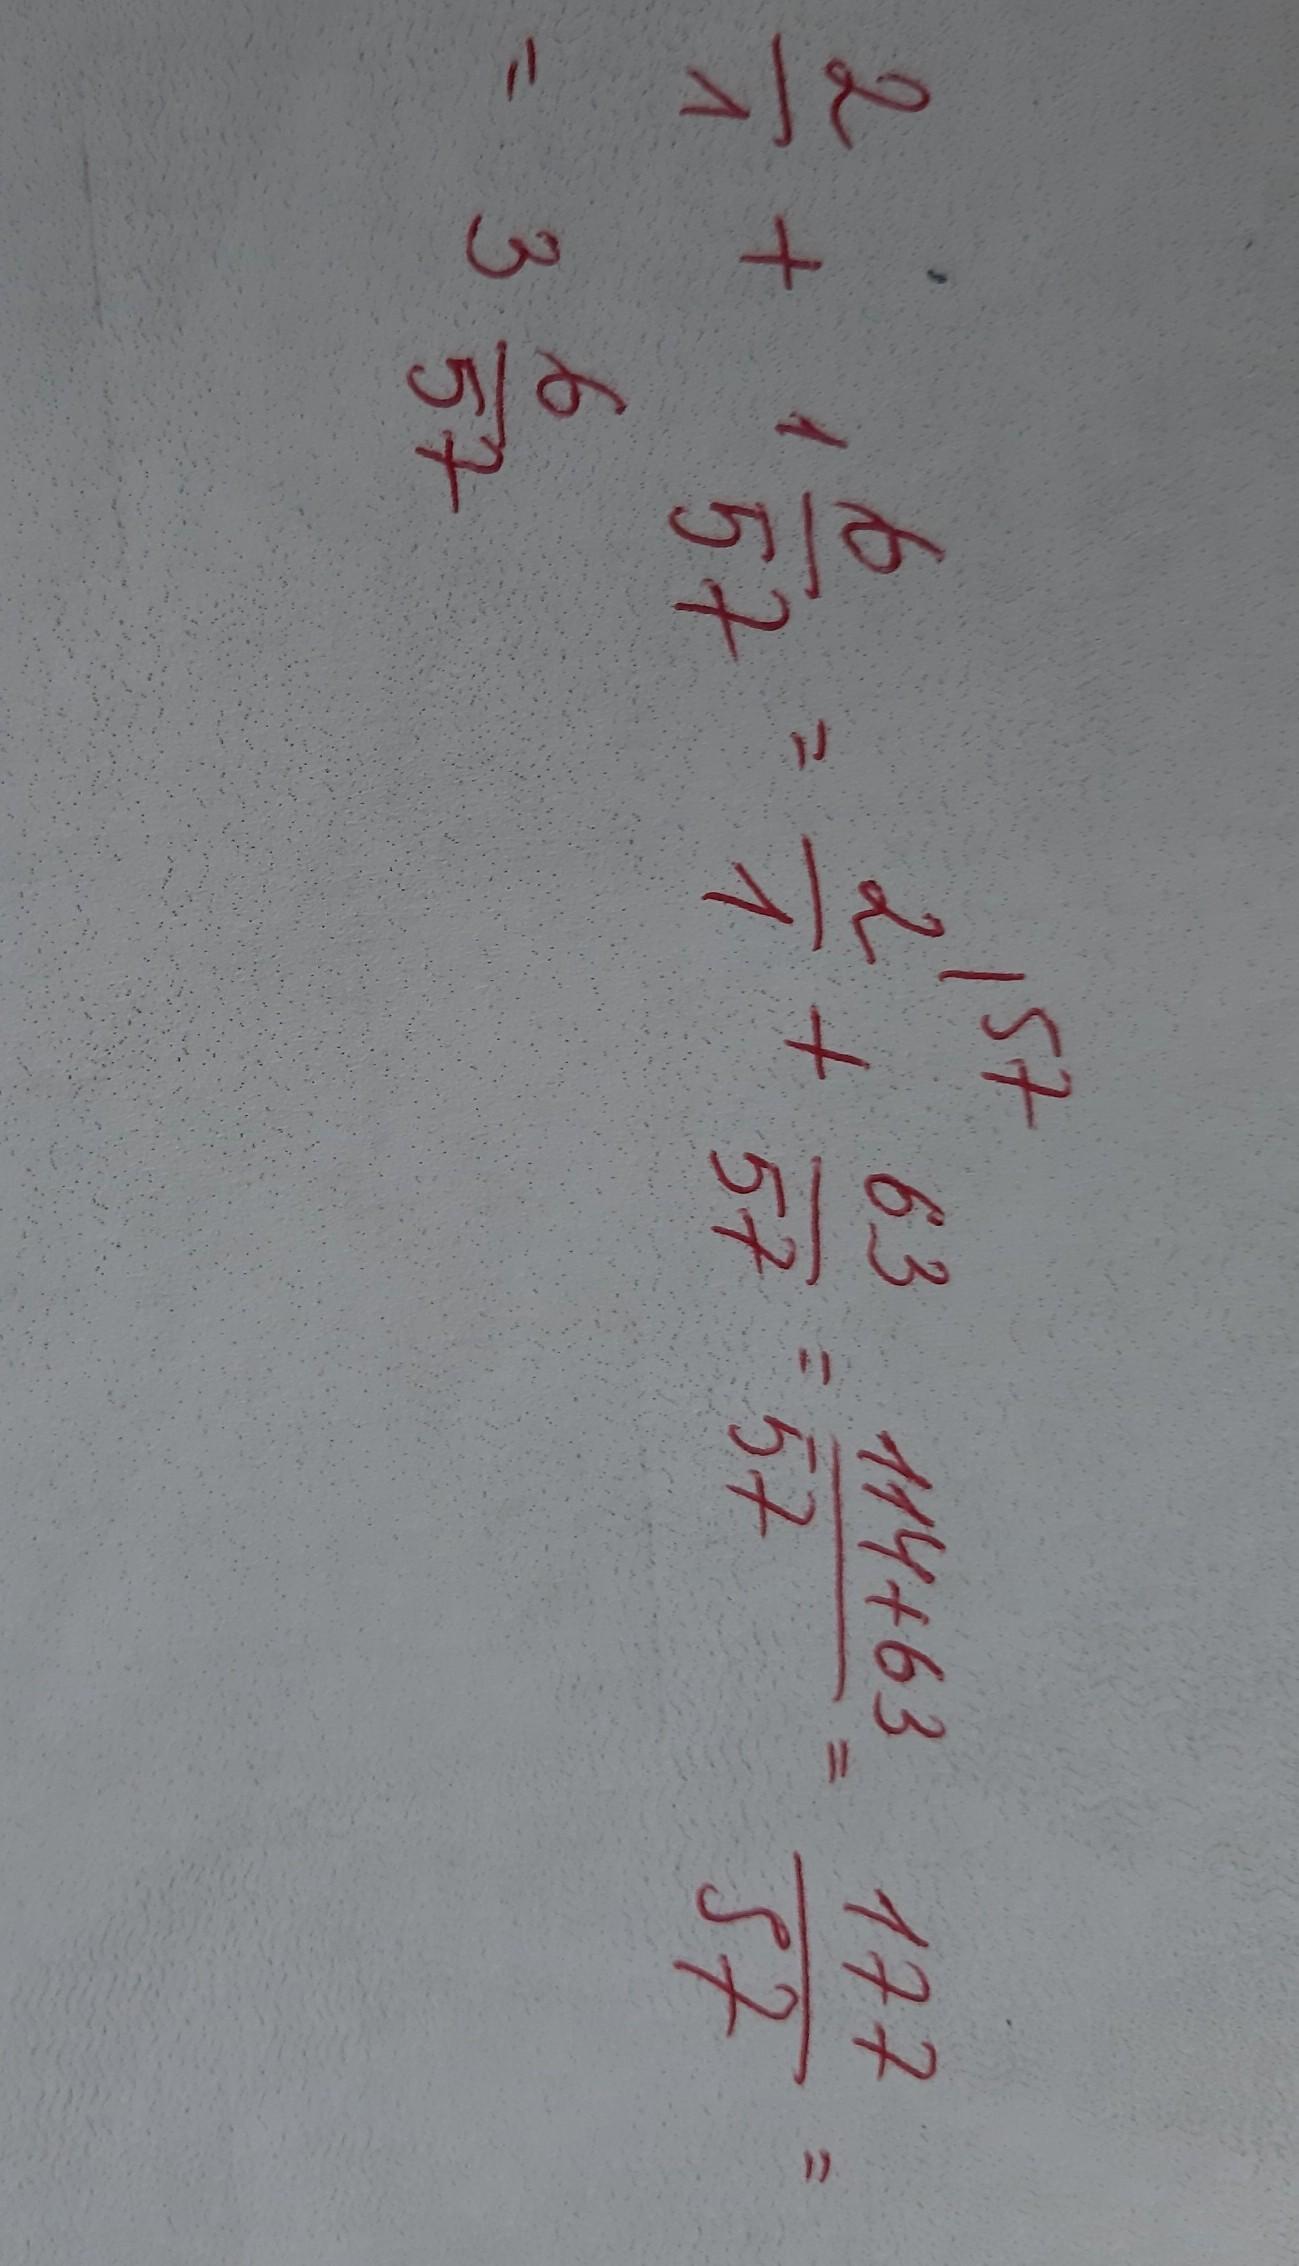 2/1 + 1 6/57 = 2/1 |57 + 63/57 = 114+63/57 = 177/57 =
= 3 6/57